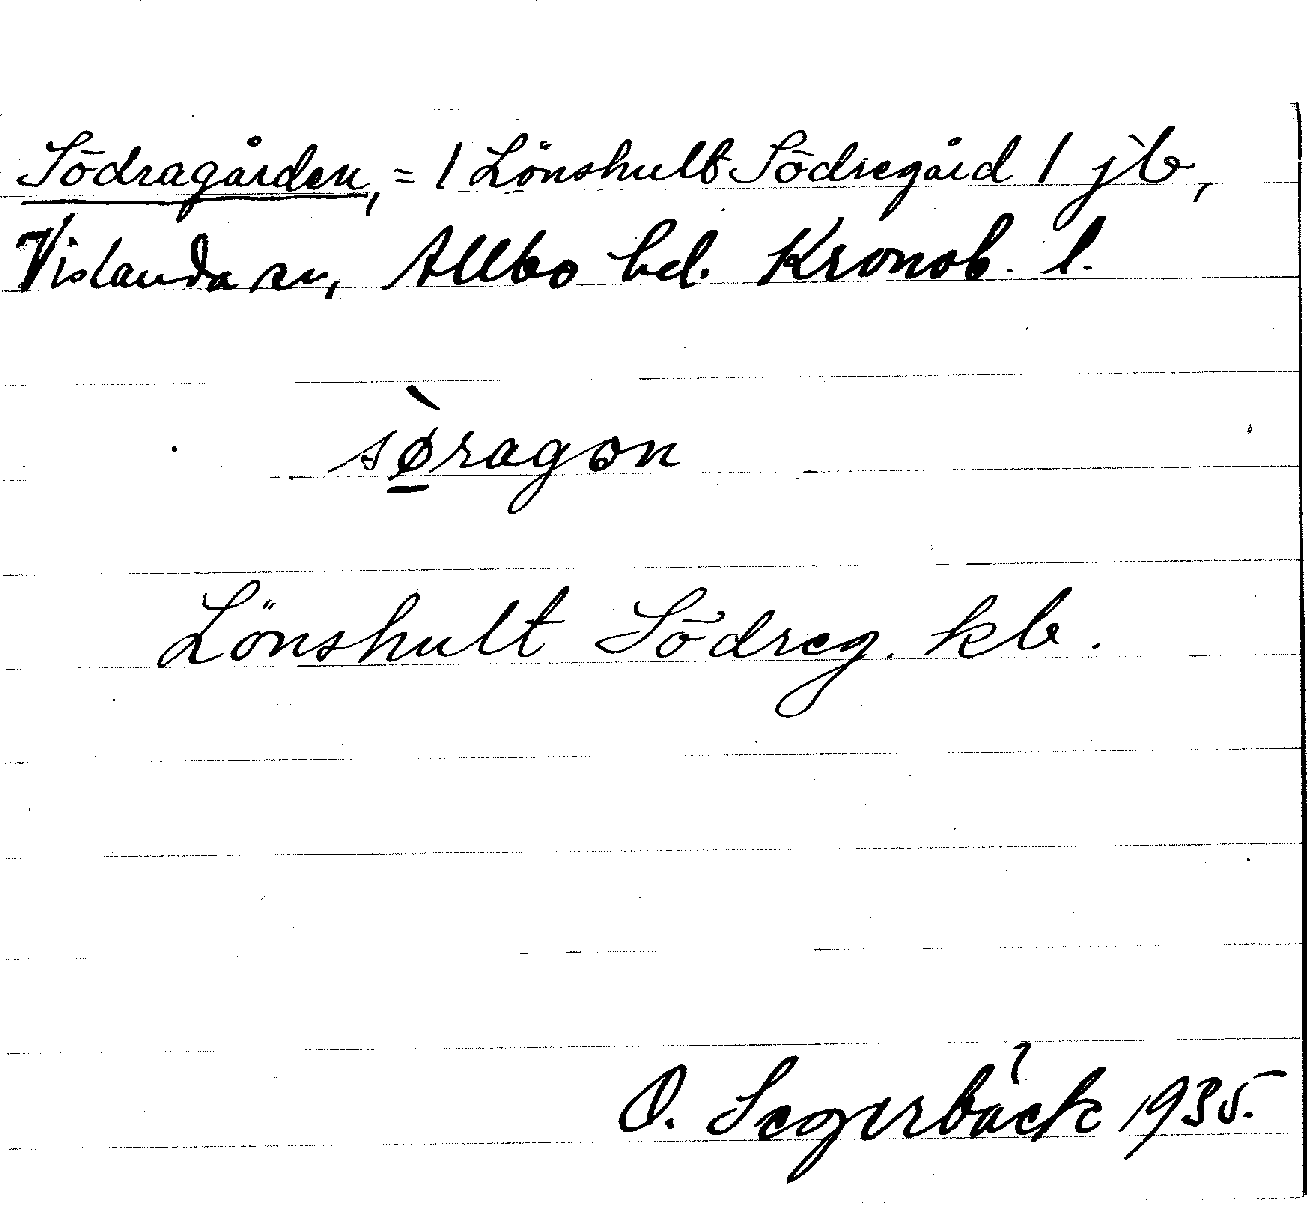 Södragården, = / Lönshult Södregård / jb,
Vislanda sn, Allbo hd. Kronob. l.
sø̲̀ragon
Lönshult Södreg. kb.
O. Segerbäck 1935.